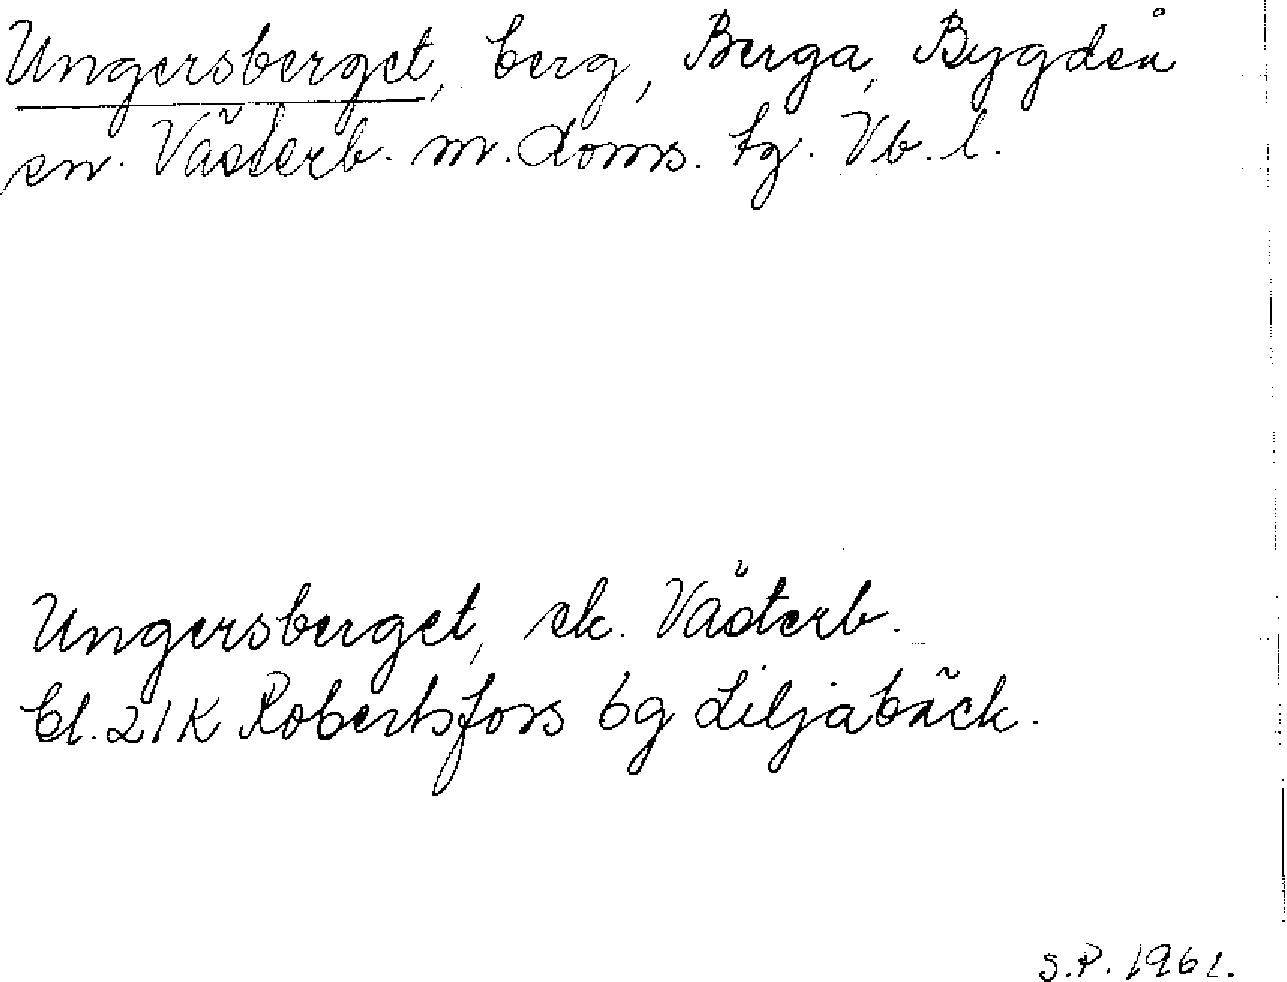 Ungersberget, berg, Berga, Bygdeå
sn. Västerb. m. doms. tg. Vb. l.
Ungersberget, ek. Västerb.
bl. 21K Robertsfors 6g Liljabäck.
S.P. 1961.